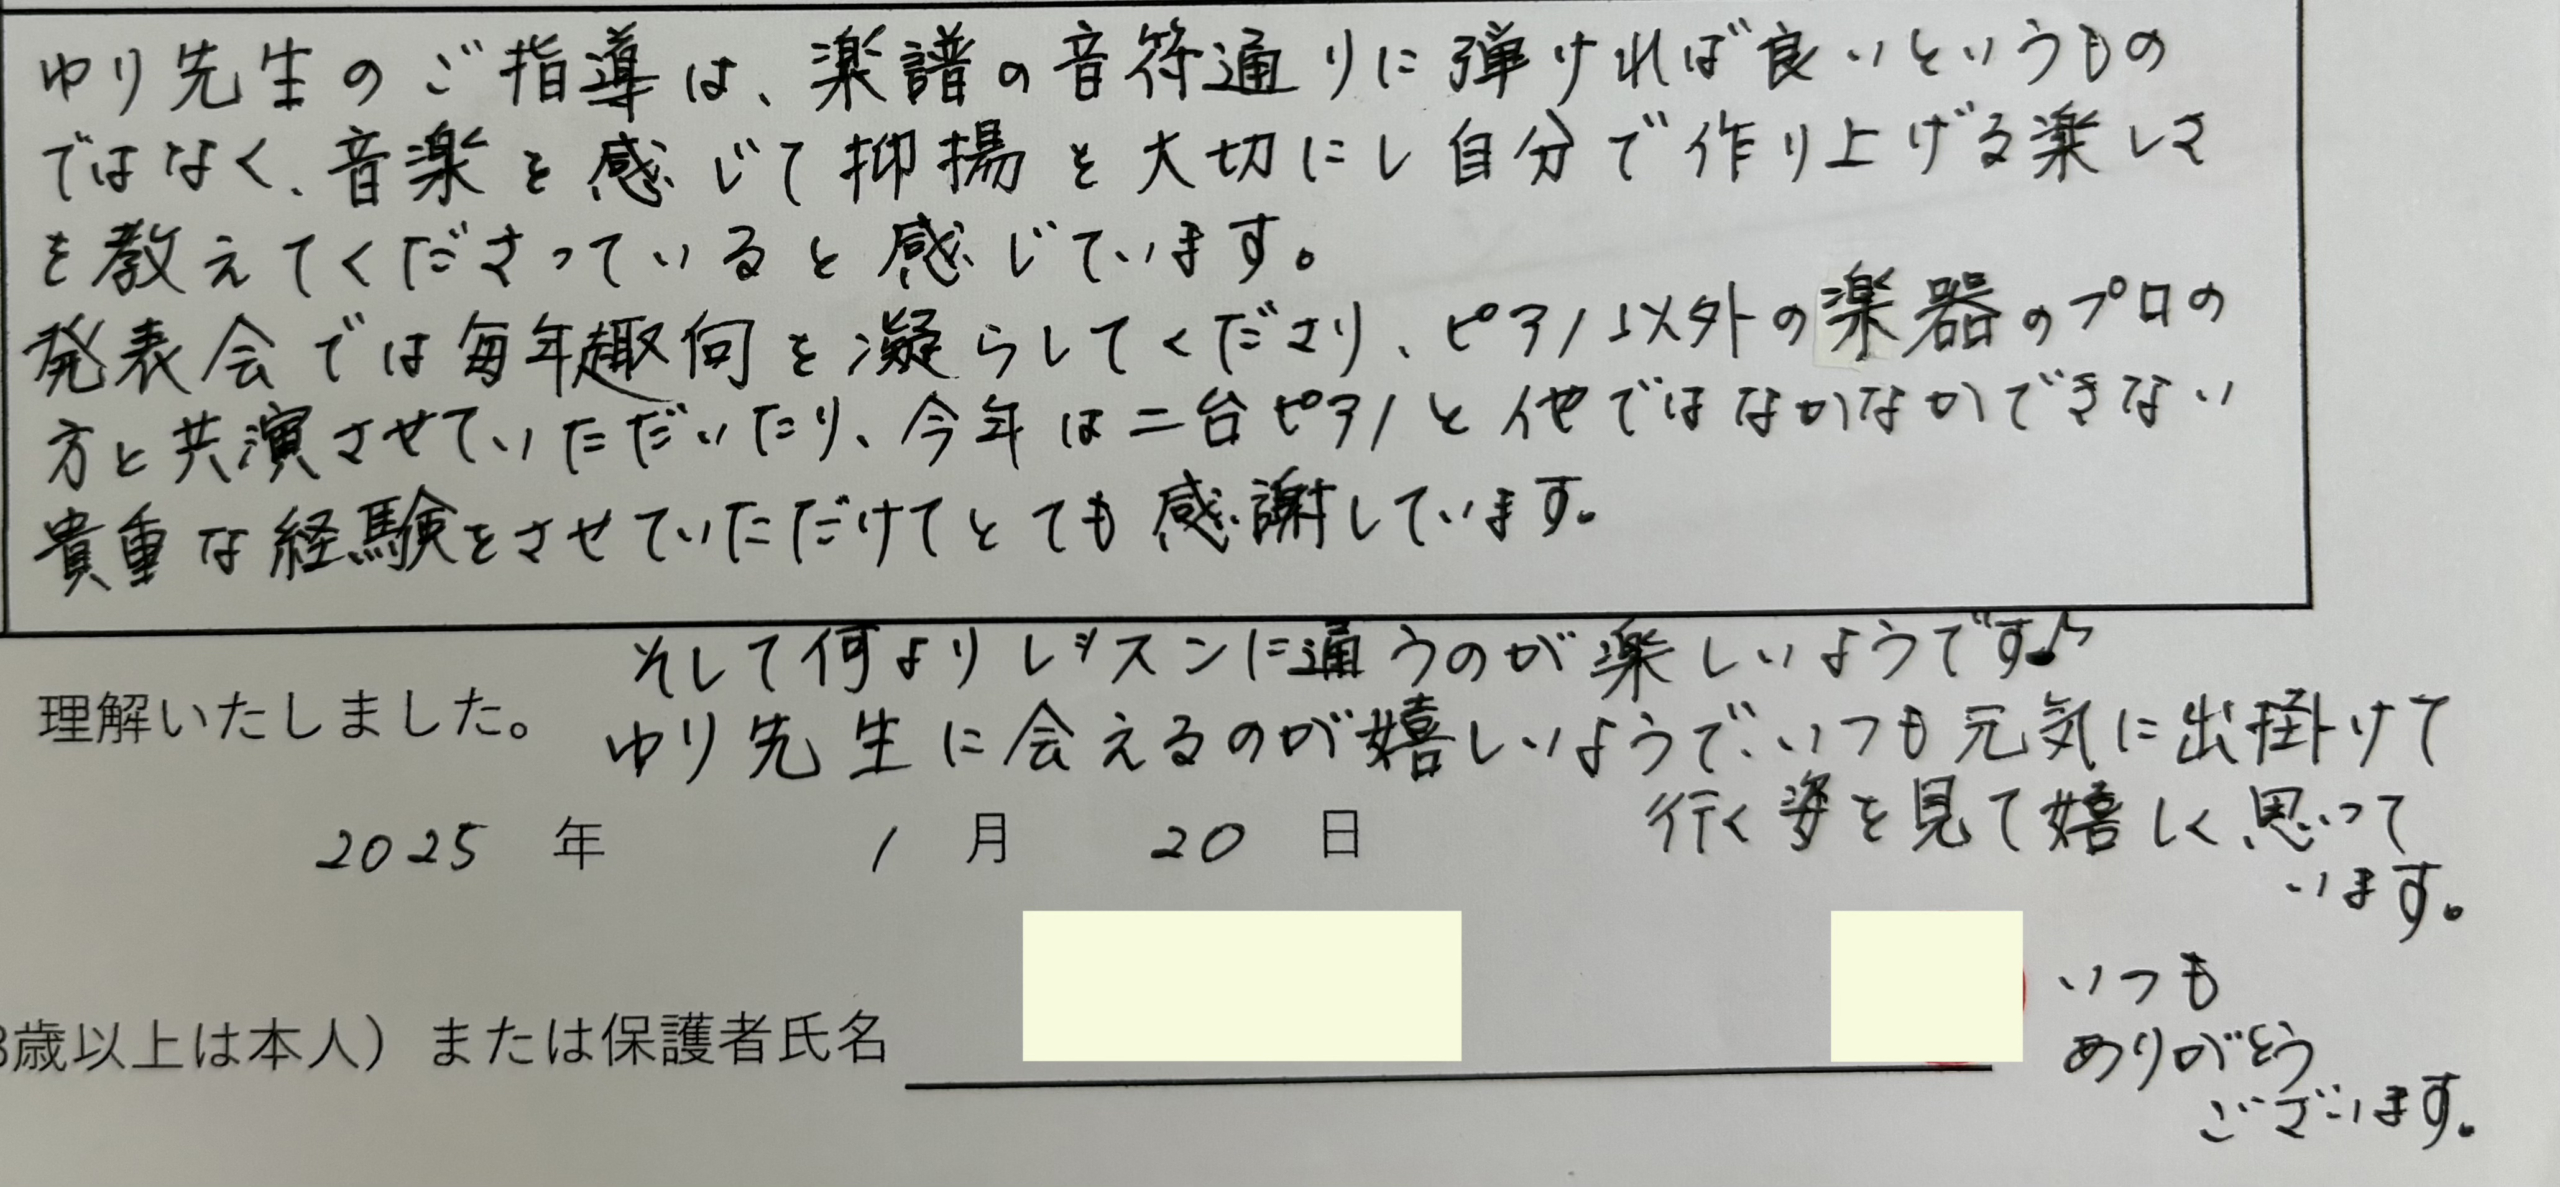 ゆり先生のご指導は、楽譜の音符通りに弾ければ良いというもの
ではなく、音楽を感じて抑揚を大切にし自分で作り上げる楽しさ
を教えてくださっていると感じています。
発表会では毎年趣向を凝らしてくださり、ピアノ以外の楽器のプロの
方と共演させていただいたり、今年は二台ピアノと他ではなかなかできない
貴重な経験をさせていただけてとても感謝しています。
そして何よりレッスンに通うのが楽しいようです♪
理解いたしました。
ゆり先生に会えるのが嬉しいようで、いつも元気に出掛けて
行く姿を見て嬉しく思って
います。
2025 年 1 月 20 日
歳以上は本人）または保護者氏名
いつも
ありがとう
ございます。